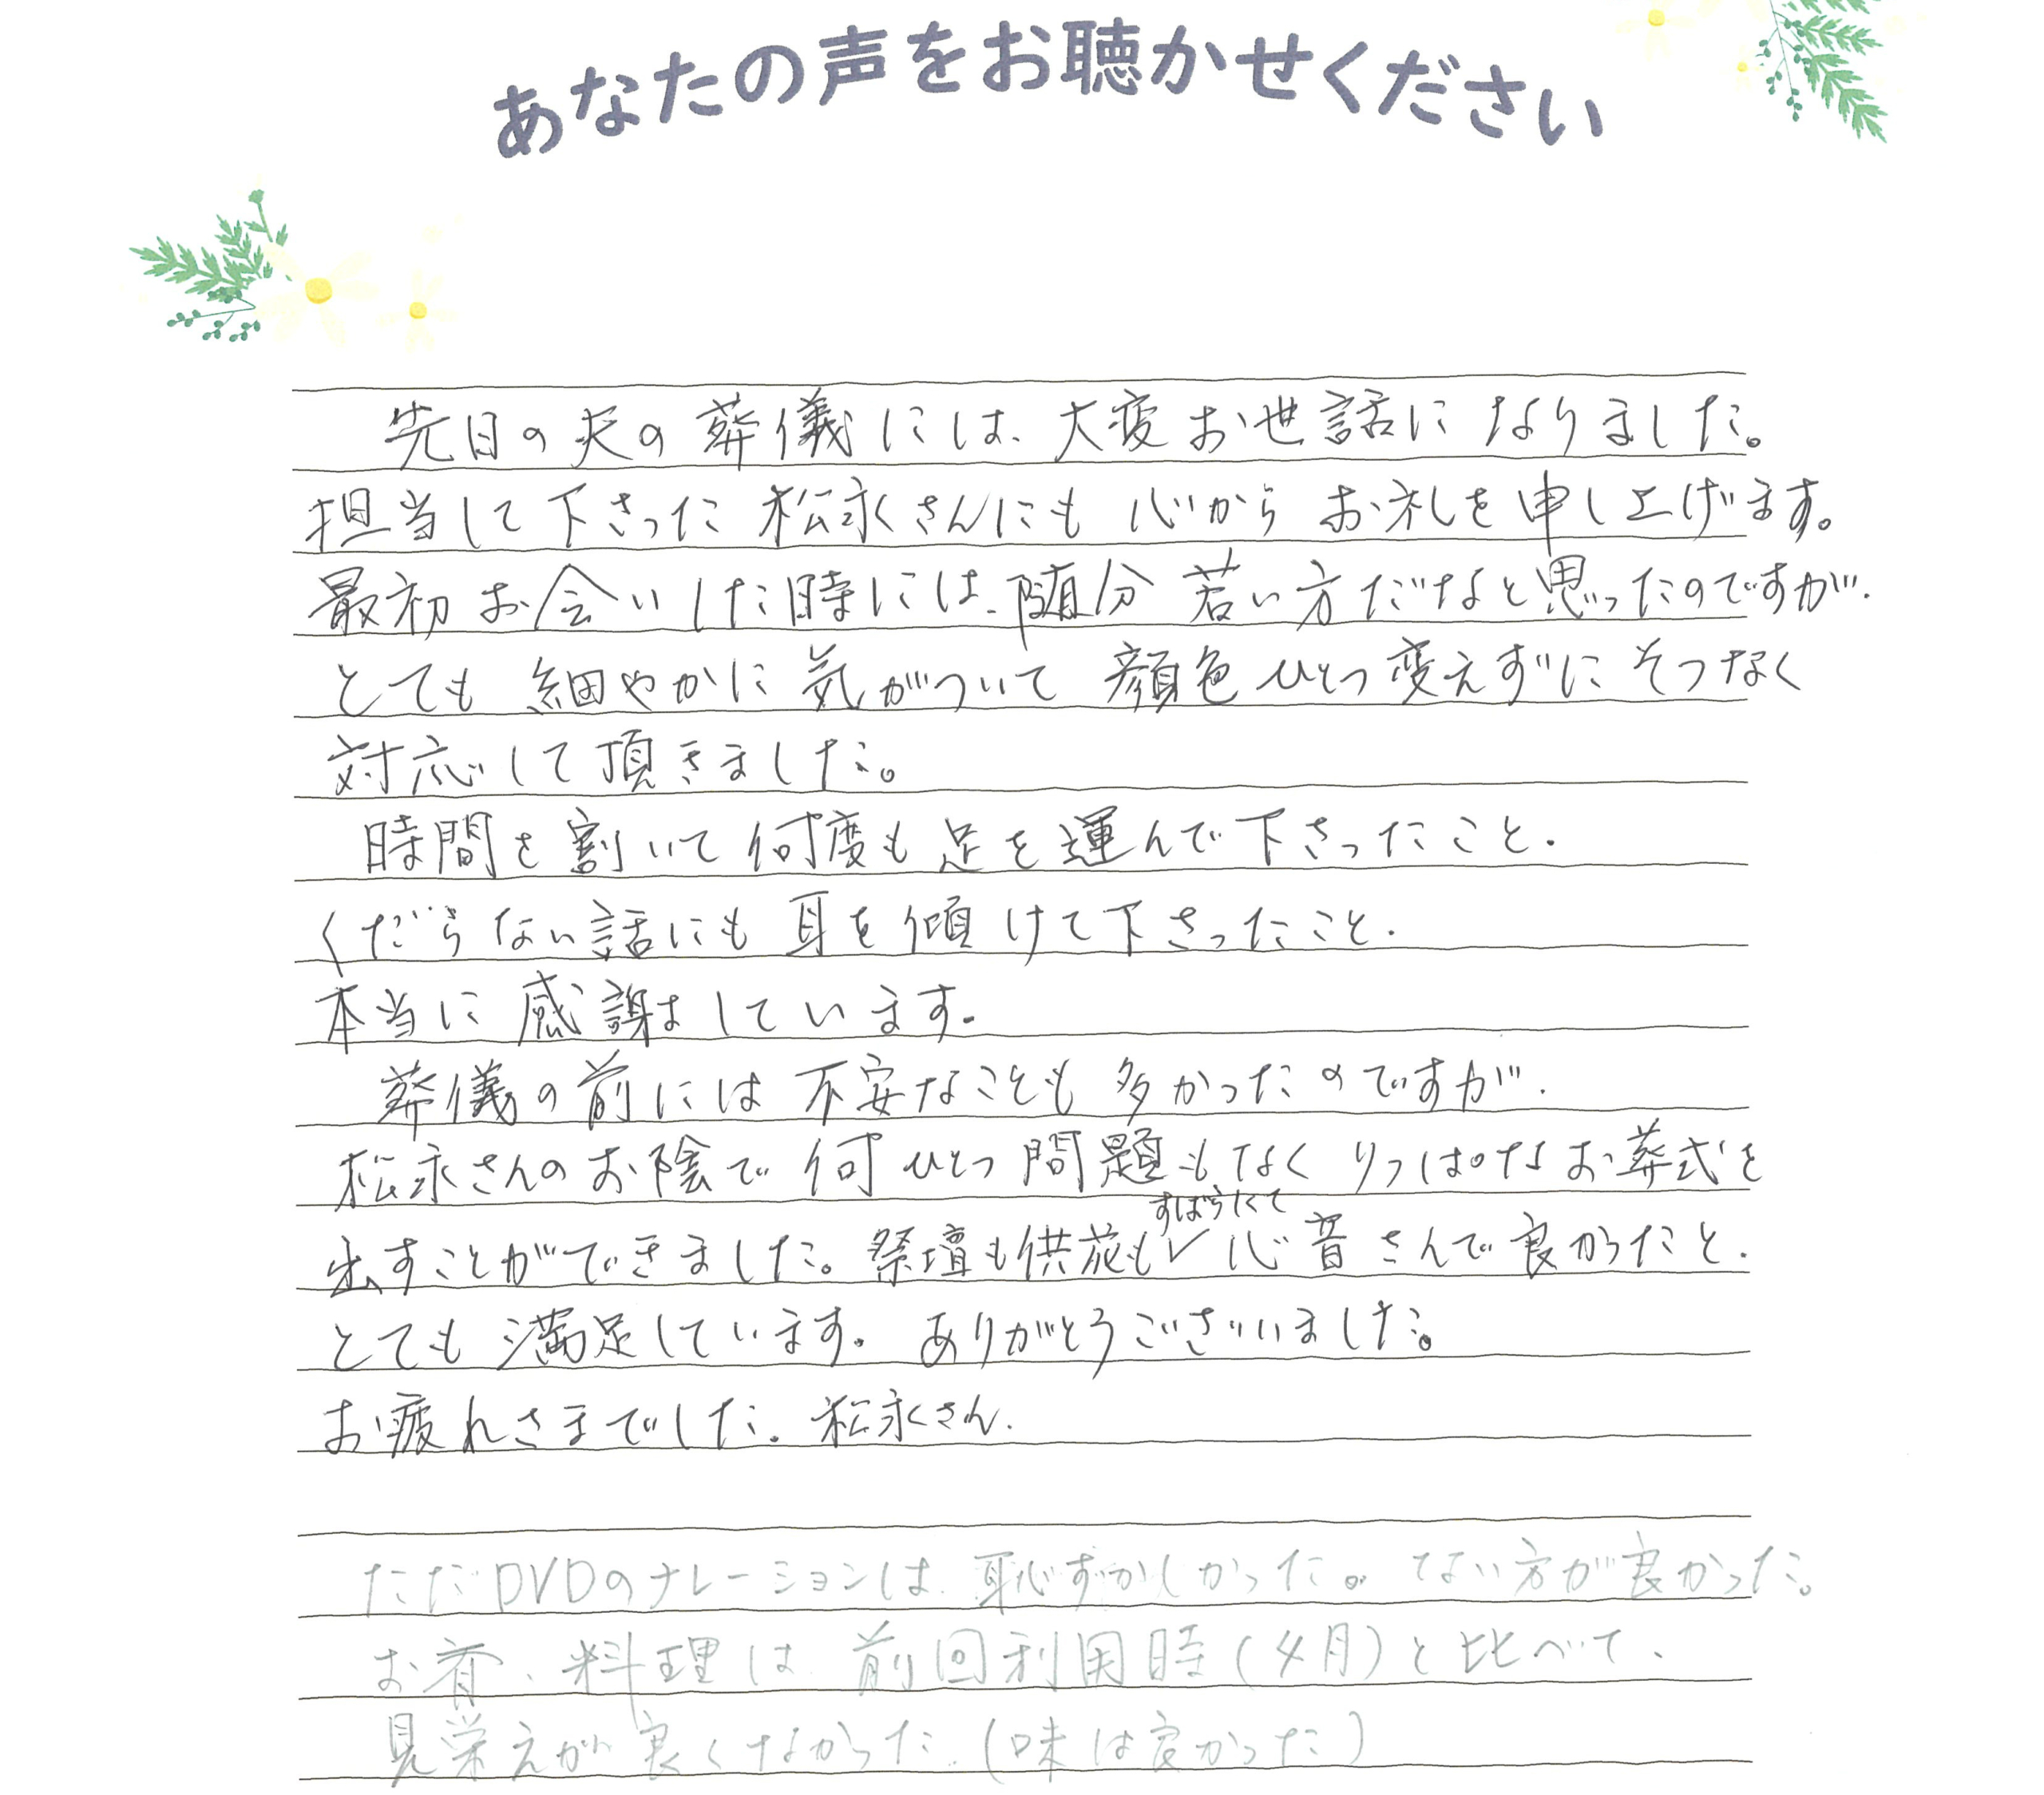 あなたの声をお聴かせください
先日の夫の葬儀には、大変お世話になりました。
担当して下さった松永さんにも心からお礼を申し上げます。
最初お会いした時には、随分若い方だなと思ったのですが、
とても細やかに気がついて顔色ひとつ変えずにそつなく
対応して頂きました。
時間を割いて何度も足を運んで下さったこと、
くだらない話にも耳を傾けて下さったこと、
本当に感謝しています。
葬儀の前には不安なことも多かったのですが、
松永さんのお陰で何ひとつ問題もなくりっぱなお葬式を
すばらしくて
出すことができました。祭壇も供花も✓心音さんで良かったと、
とても満足しています。ありがとうございました。
お疲れさまでした。松永さん.
ただDVDのナレーションは、恥ずかしかった。ない方が良かった。
お斎、料理は、前回利用時(4月)と比べて、
見栄えが良くなかった。(味は良かった)